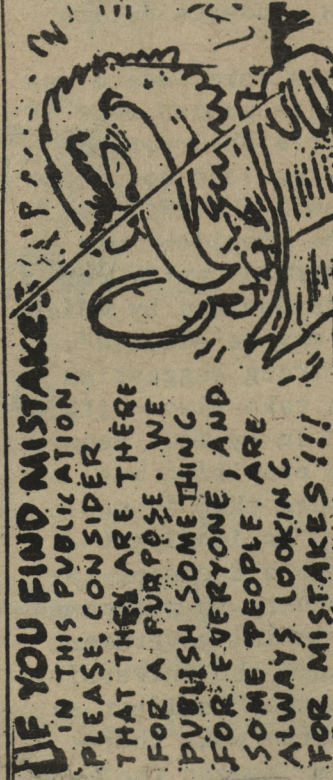 IF YOU FIND MISTAKES
IN THIS PUBLICATION,
PLEASE, CONSIDER
THAT THEY ARE THERE
FOR A PURPOSE. WE
PUBLISH SOMETHING
FOR EVERYONE, AND
SOME PEOPLE ARE
ALWAYS LOOKING
FOR MISTAKES!!!